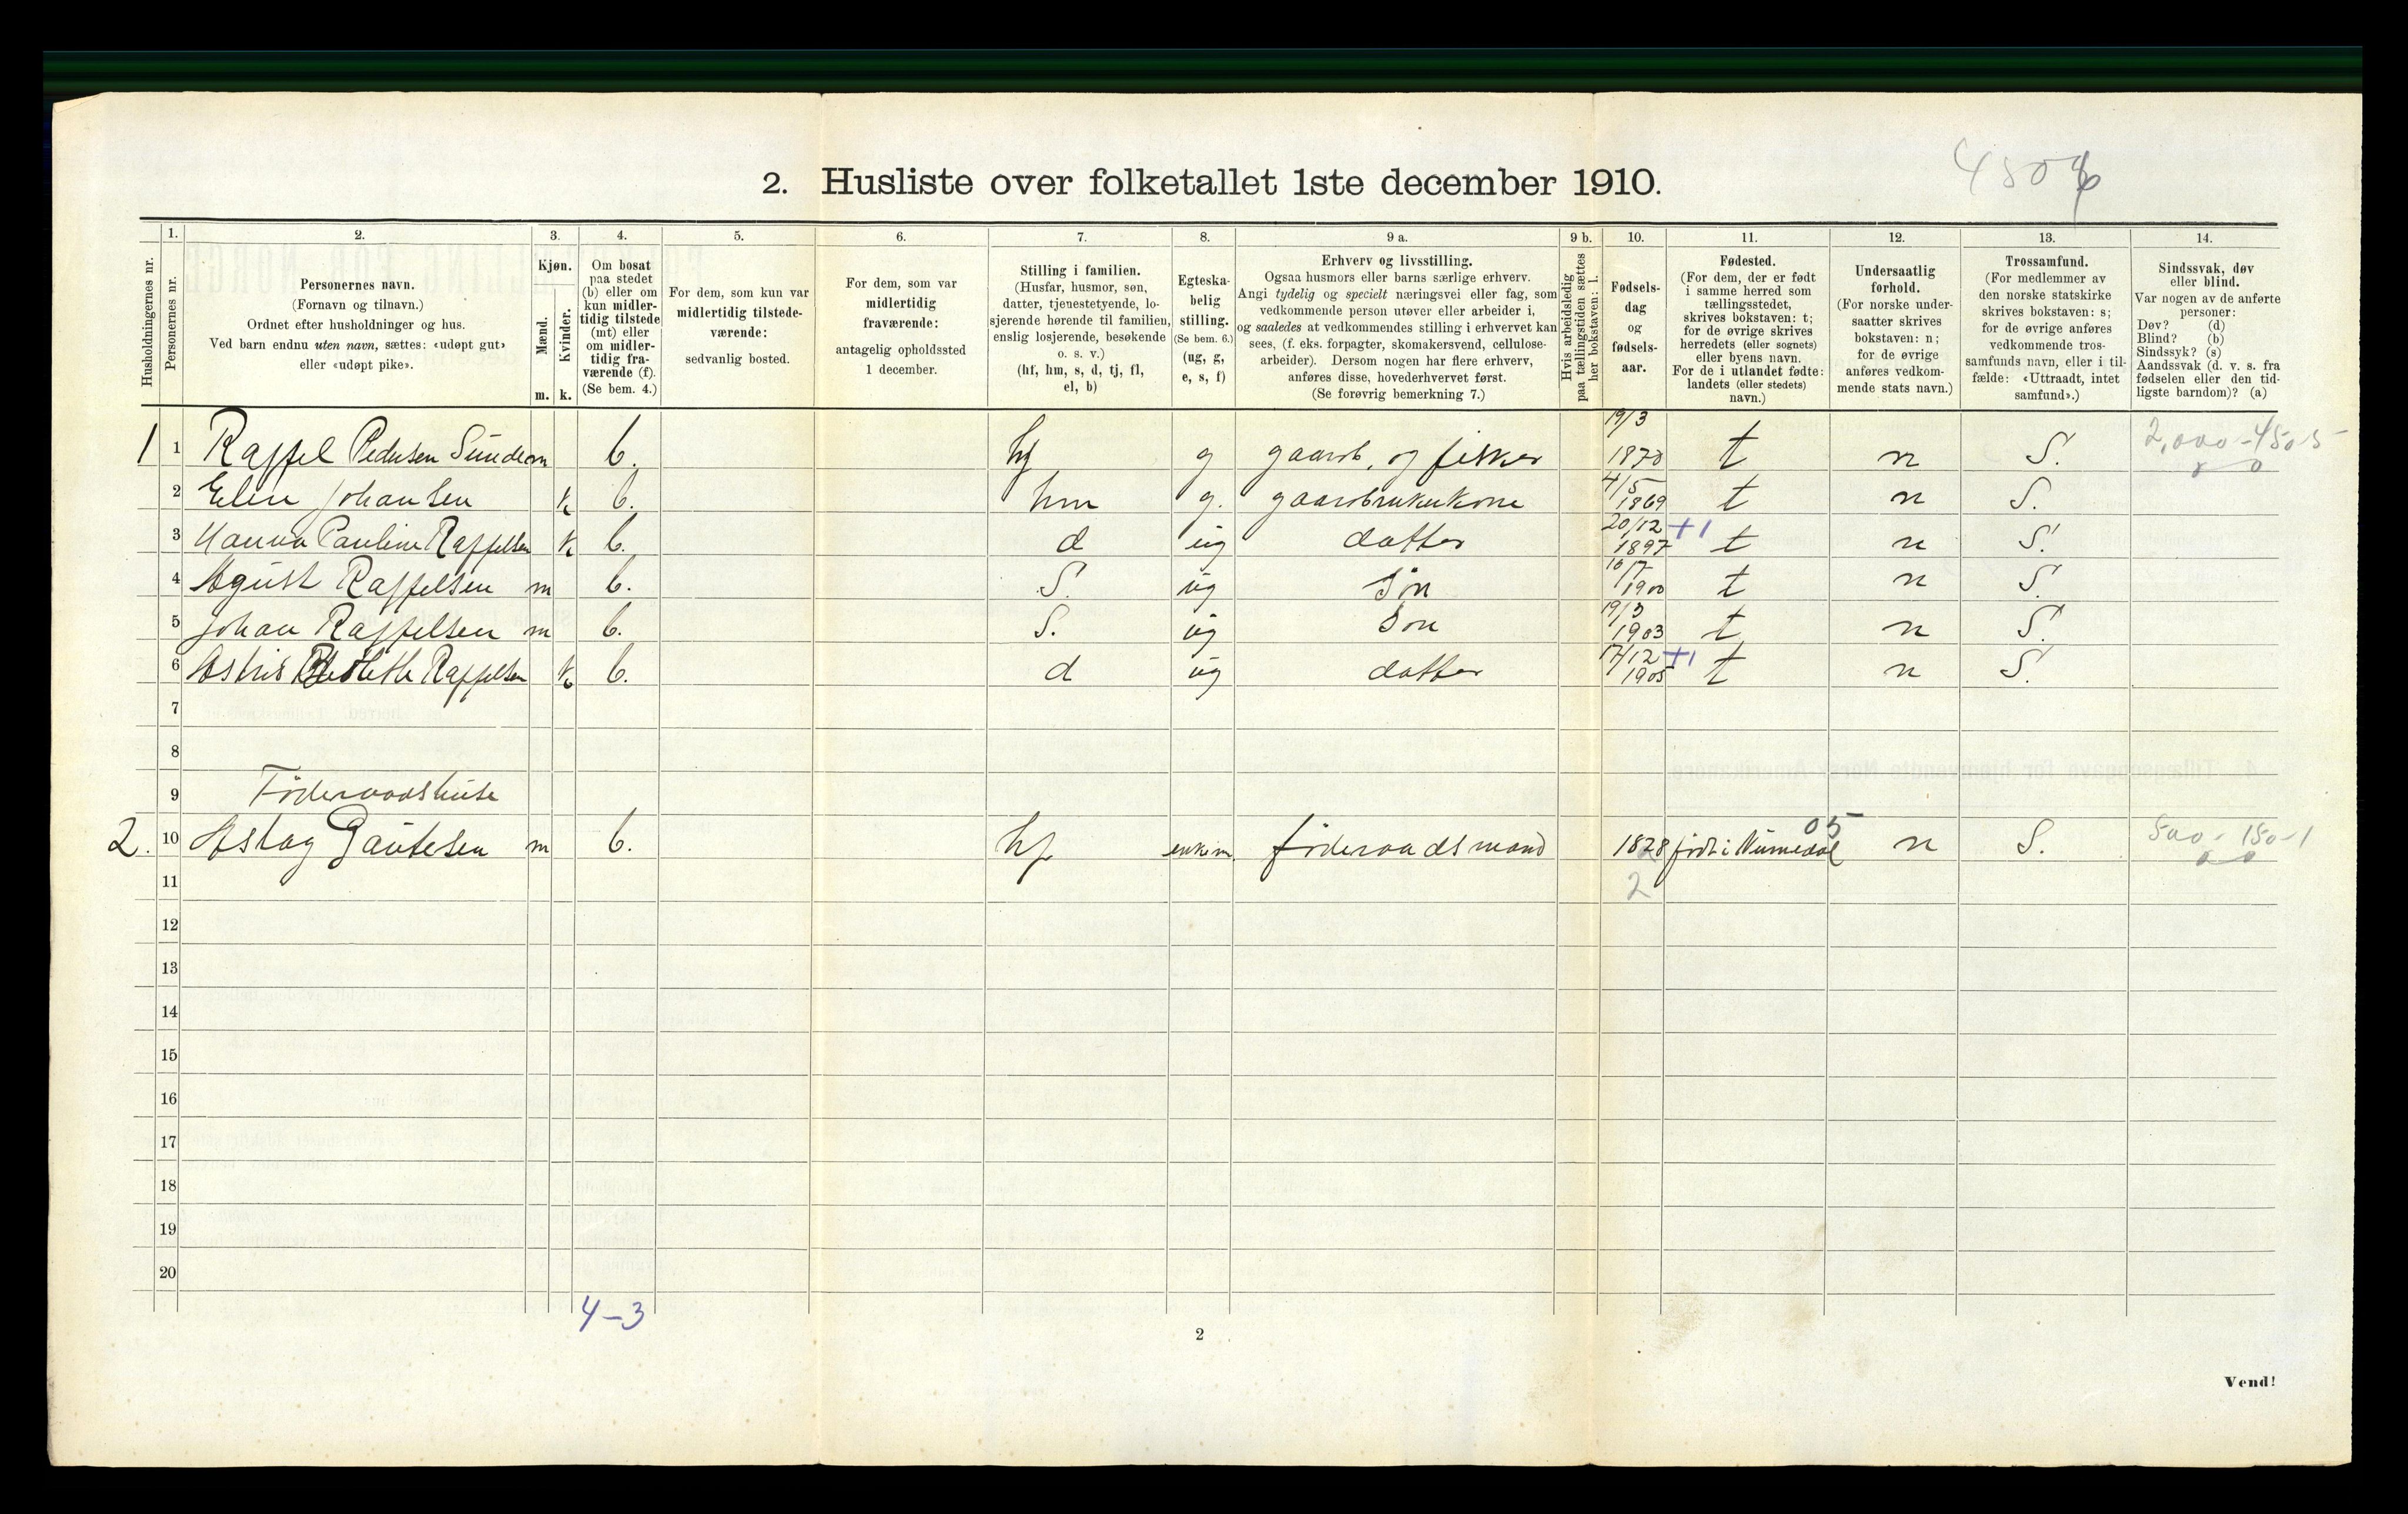 2. Husliste over folketallet 1ste december 1910.
1. 2. 3. 4. 5. 6. 7. 8. 9 a. 9 b. 10. 11. 12. 13. 14.
Husholdningernes nr.
Personernes nr.
Personernes navn.
(Fornavn og tilnavn.)
Ordnet efter husholdninger og hus.
Ved barn endnu uten navn, sættes: «udøpt gut»
eller «udøpt pike».
Kjøn.
Mænd.
Kvinder.
m. k.
Om bosat
paa stedet
(b) eller om
kun midler-
tidig tilstede
(mt) eller
om midler-
tidig fra-
værende (f).
(Se bem. 4.)
For dem, som kun var
midlertidig tilstede-
værende:
sedvanlig bosted.
For dem, som var
midlertidig
fraværende:
antagelig opholdssted
1 december.
Stilling i familien.
(Husfar, husmor, søn,
datter, tjenestetyende, lo-
sjerende hørende til familien,
enslig losjerende, besøkende
o. s. v.)
(hf, hm, s, d, tj, fl,
el, b)
Egteska-
belig
stilling.
(Se bem. 6.)
(ug, g,
e, s, f)
Erhverv og livsstilling.
Ogsaa husmors eller barns særlige erhverv.
Angi tydelig og specielt næringsvei eller fag, som
vedkommende person utøver eller arbeider i,
og saaledes at vedkommendes stilling i erhvervet kan
sees, (f. eks. forpagter, skomakersvend, cellulose-
arbeider). Dersom nogen har flere erhverv,
anføres disse, hovederhvervet først.
(Se forøvrig bemerkning 7.)
Hvis arbeidsledig
paa tællingstiden sættes
her bokstaven: l.
Fødsels-
dag
og
fødsels-
aar.
Fødested.
(For dem, der er født
i samme herred som
tællingsstedet,
skrives bokstaven: t;
for de øvrige skrives
herredets (eller sognets)
eller byens navn.
For de i utlandet fødte:
landets (eller stedets)
navn.)
Undersaatlig
forhold.
(For norske under-
saatter skrives
bokstaven: n;
for de øvrige
anføres vedkom-
mende stats navn.)
Trossamfund.
(For medlemmer av
den norske statskirke
skrives bokstaven: s;
for de øvrige anføres
vedkommende tros-
samfunds navn, eller i til-
fælde: «Uttraadt, intet
samfund».)
Sindssvak, døv
eller blind.
Var nogen av de anførte
personer:
Døv? (d)
Blind? (b)
Sindssyk? (s)
Aandssvak (d. v. s. fra
fødselen eller den tid-
ligste barndom)? (a)
1 1 Raffel Pedersen Sunde m b. hf g gaarb. og fisker 19/3 1870 t n S. 2,000-450-5
2 Elen Johansen k b. hm g. gaarbrukerkone 4/5 1869 t n S.
3 Hanna Pauline Raffelsen k b. d ug datter 20/12 1897 +1 t n S.
4 Agust Raffelsen m b. S. ug Søn 1900 t n S.
5 Johan Raffelsen m b. S. ug Søn 19/3 1903 t n S.
6 Astrid Raffelsen k b. d ug datter 17/12 1905 +1 t n S.
7
8
9 Føderaadshuse
2. 10 Aslag Gautesen m b. hf enkem. føderaadsmand 1828 født i Numedal 05 n S. 500-150-1
11 2
12
13
14
15
16
17
18
19
20
4-3
2
Vend!